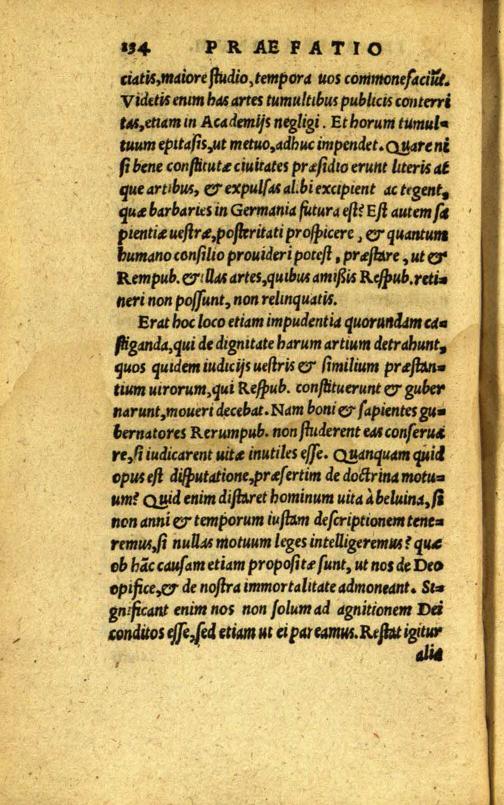 134 PRAEFATIO
ciatis, maiore studio, tempora uos commonefaciũt.
Videtis enim has artes tumultibus publicis conterri
tas, etiam in Academijs negligi. Et horum tumul=
tuum epitasis, ut metuo, adhuc impendet. Quare ni
si bene constitutæ ciuitates præsidio erunt literis at
que artibus, & expulsas alibi excipient ac tegent,
quæ barbaries in Germania futura est? Est autem sa
pientiæ uestræ, posteritati prospicere, & quantum
humano consilio prouideri potest, præstare, ut &
Rempub. & illas artes, quibus amißis Respub. reti=
neri non possunt, non relinquatis.
Erat hoc loco etiam impudentia quorundam ca=
stiganda, qui de dignitate harum artium detrahunt,
quos quidem iudicijs uestris & similium præstan=
tium uirorum, qui Respub. constituerunt & guber
narunt, moueri decebat. Nam boni & sapientes gu=
bernatores Rerumpub. non studerent eas conserua
re, si iudicarent uitæ inutiles esse. Quanquam quid
opus est disputatione, præsertim de doctrina motu=
um? Quid enim distaret hominum uita à beluina, si
non anni & temporum iustam descriptionem tene=
remus, si nullas motuum leges intelligeremus? quæ
ob hãc causam etiam propositæ sunt, ut nos de Deo
opifice, & de nostra immortalitate admoneant. Si=
gnificant enim nos non solum ad agnitionem Dei
conditos esse, sed etiam ut ei pareamus. Restat igitur
alia